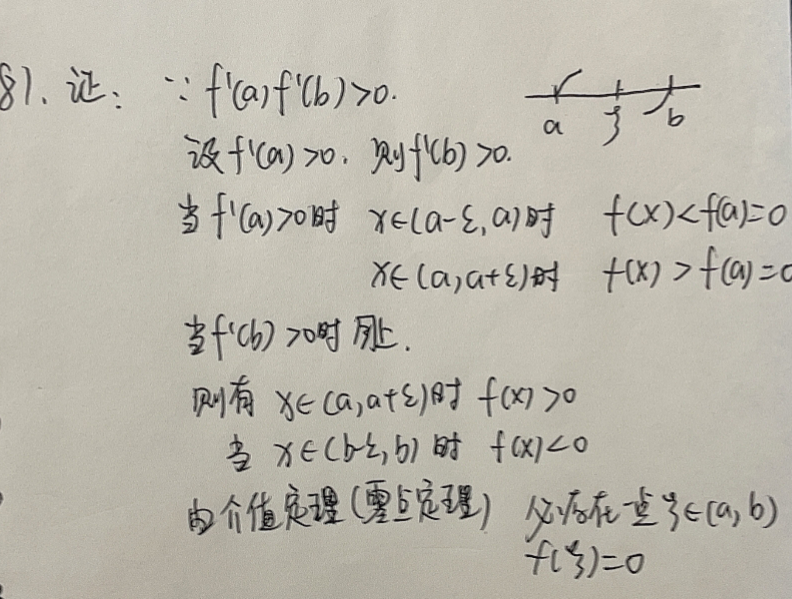 81. 证: ∵ f'(a)f'(b)>0.
a ξ b
设f'(a)>0. 则f'(b)>0.
当f'(a)>0时 x∈(a-ε,a)时 f(x)<f(a)=0
x∈(a,a+ε)时 f(x)>f(a)=0
当f'(b)>0时 同上.
则有 x∈(a,a+ε)时 f(x)>0
当 x∈(b-ε,b)时 f(x)<0
由介值定理(零点定理) 必存在一点ξ∈(a,b)
f(ξ)=0